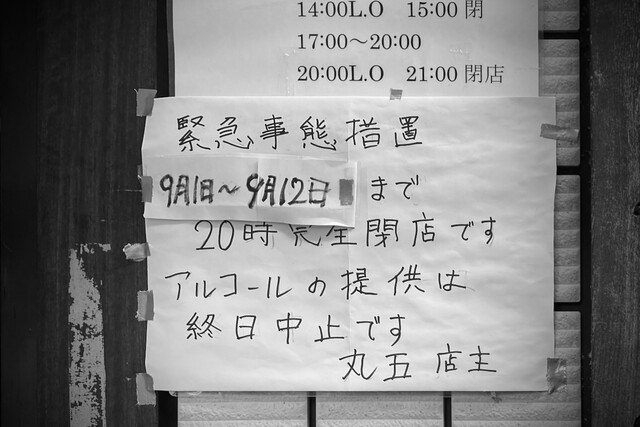 14:00L.O 15:00 閉
17:00～20:00
20:00L.O 21:00 閉店
緊急事態措置
9月1日～9月12日 まで
20時完全閉店です
アルコールの提供は
終日中止です
丸五 店主